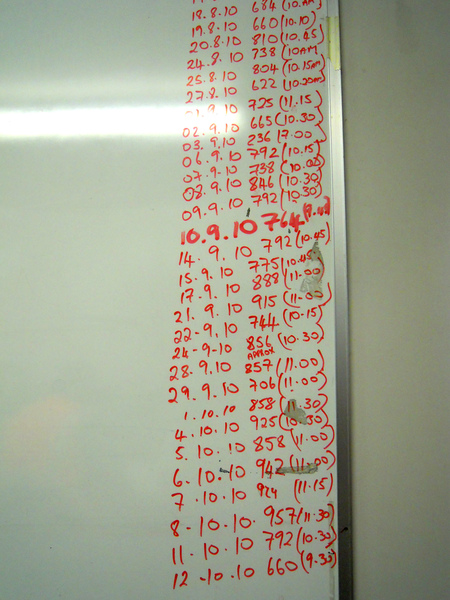 18.8.10 684 (10.AM)
19.8.10 660 (10.10)
20.8.10 810 (10.45)
24.8.10 738 (10AM)
25.8.10 804 (10.15AM)
27.8.10 622 (10.20AM)
01.9.10 725 (11.15)
02.9.10 665 (10.30)
03.9.10 236 17.00
06.9.10 792 (10.15)
07.9.10 738 (10.00)
08.9.10 846 (10.30)
09.9.10 792 (10.30)
10.9.10 764
14.9.10 792 (10.45)
15.9.10 775 (10.45)
17.9.10 888 (11.00)
21.9.10 915 (11-00)
22-9.10 744 (10-15)
24-9-10 856 (10.30)
APPROX
28.9.10 857 (11.00)
29.9.10 706 (11.00)
1.10.10 858 (11.30)
4.10.10 925 (10.30)
5.10.10 858 (11.00)
6.10.10 942 (11.00)
7.10.10 924 (11.15)
8-10.10. 957 (11.30)
11.10.10 792 (10.30)
12-10.10 660 (9.35)